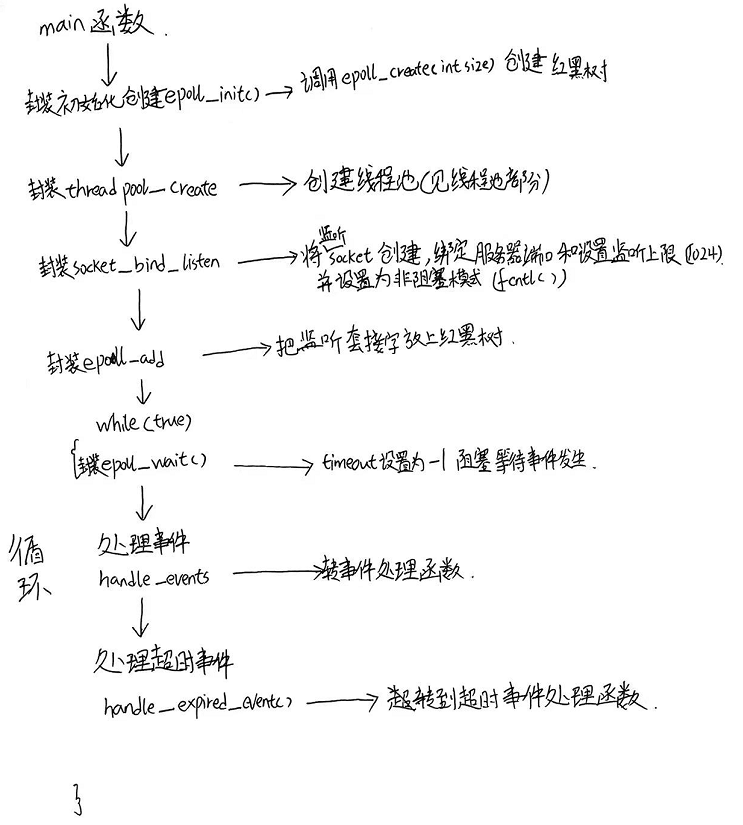 main 函数.
封装初始化创建epoll_init() → 调用epoll_create(int size) 创建红黑树
封装thread pool_create → 创建线程池(见线程池部分)
监听
封装socket_bind_listen → 将socket 创建,绑定服务器端口和设置监听上限(1024)
并设置为非阻塞模式(fcntl())
封装epoll_add → 把监听套接字放上红黑树.
while(true)
{封装epoll_wait() → timeout设置为-1 阻塞等待事件发生.
循环
处理事件
handle_events → 转事件处理函数.
处理超时事件
handle_expired_event() → 转到超时事件处理函数.
}